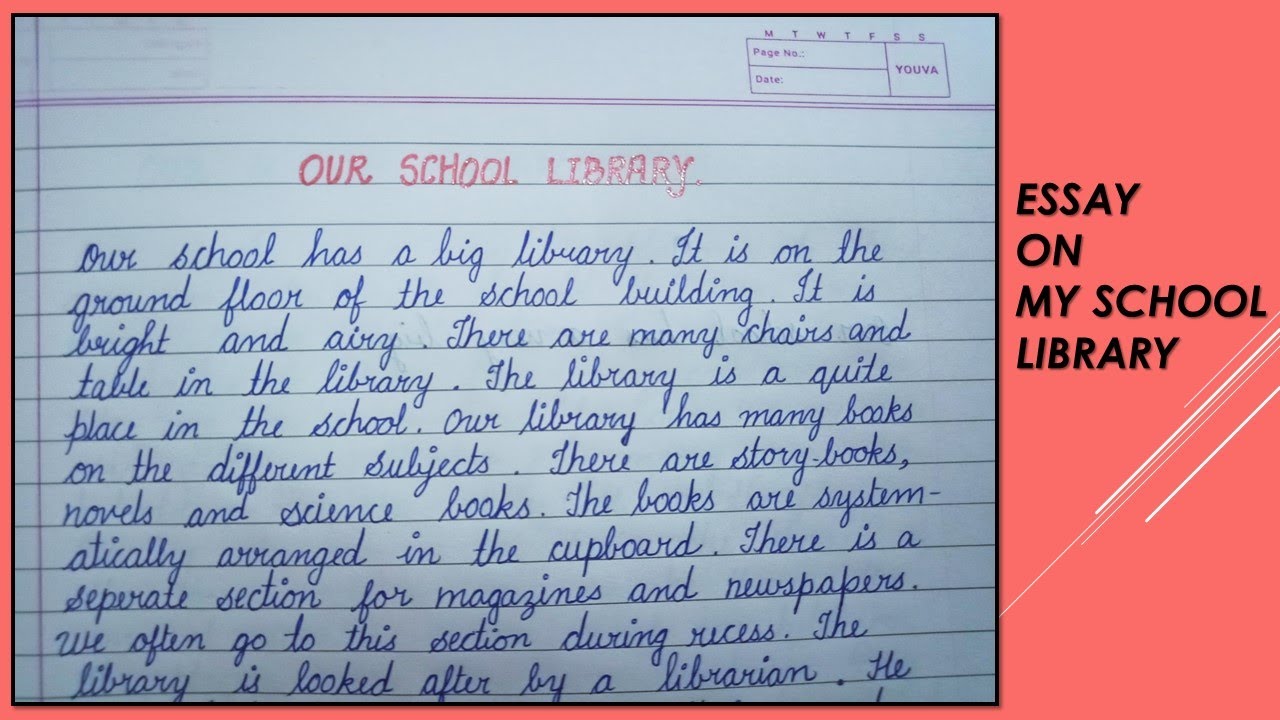 M T W T F S S
Page No.:
YOUVA
Date:
OUR SCHOOL LIBRARY.
Our school has a big library. It is on the
ground floor of the school building. It is
bright and airy. There are many chairs and
table in the library. The library is a quite
place in the school. Our library has many books
on the different subjects. There are story-books,
novels and science books. The books are system-
atically arranged in the cupboard. There is a
seperate section for magazines and newspapers.
We often go to this section during recess. The
library is looked after by a librarian. He
ESSAY
ON
MY SCHOOL
LIBRARY